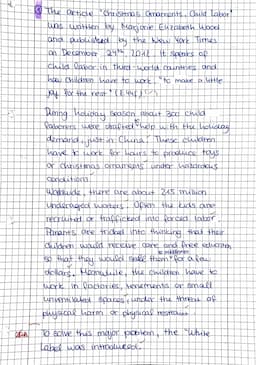 The article "Christmas Ornaments, Child Labor"
was written by Marjorie Elizabeth Wood
and published by the New York Times
on December 24th, 2012. It speaks of
child labor in third-world countries and
how children have to work, "to make a little
joy for the rest"
During holiday season about 300 child
laborers were drafted help with the holiday
demand, just in China. These children
have to work for hours to produce toys
or christmas ornaments under hazardous
conditions.
Worldwide, there are about 215 million
underaged workers. Often the kids are
recruited or trafficked into forced labor.
Parents are tricked into thinking that their
children would receive care and free education,
so that they would sell them for a few
dollars. Meanwhile, the children have to
work in factories, tenements or small
unventilated spaces, under the threat of
physical harm or physical restraint.
To solve this major problem, the "White
Label was introduced.